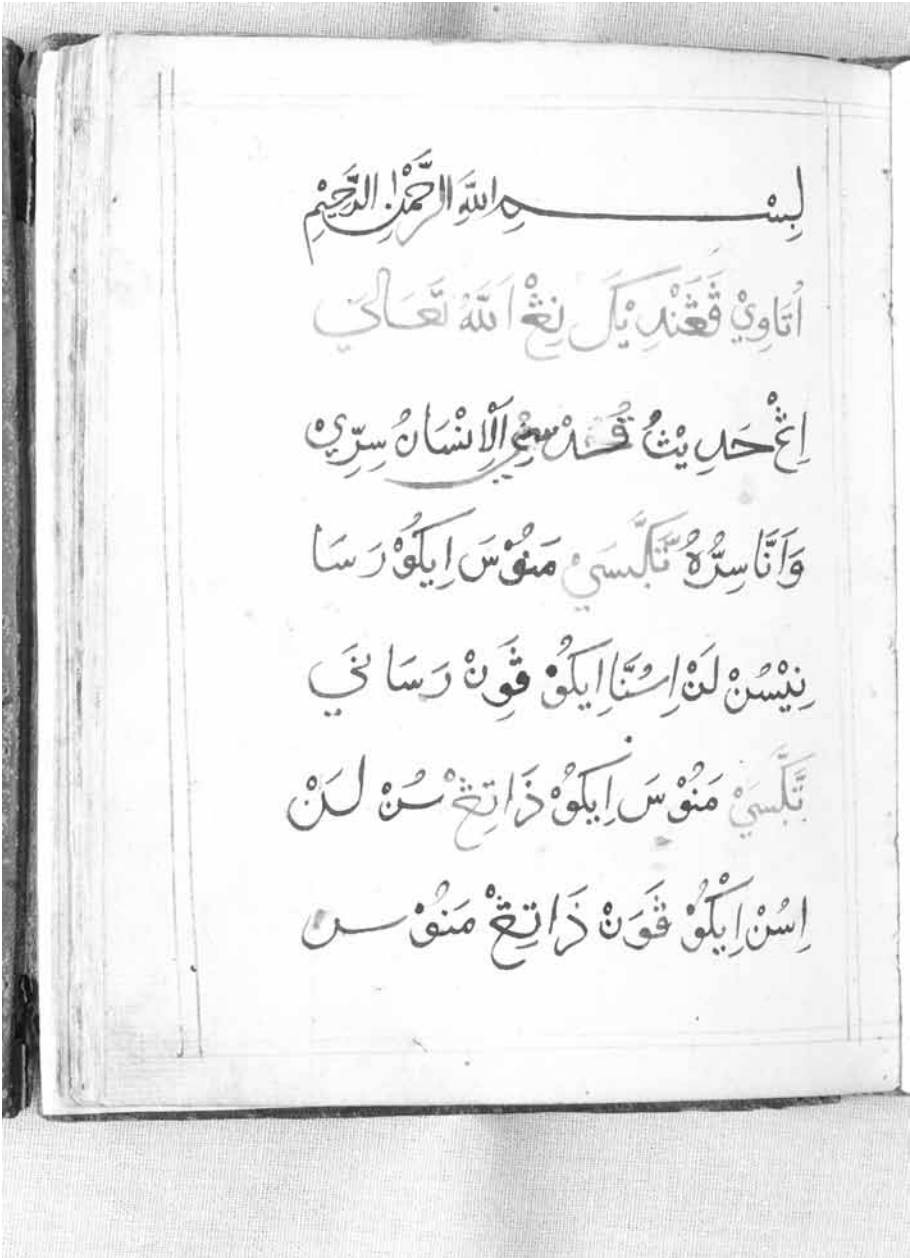 بِسْمِ اللهِ الرَّحْمٰنِ الرَّحِيْمِ
اُتَاوِيْ ڤَڠَنْدِيْكَلَ نِڠْ اَللّٰهُ تَعَالَىٰ
اِڠْ حَدِيْثْ قُدْسِيْ اَلْاِنْسَانُ سِرِّيْ
وَاَنَّا سِرُّهُ تٓڲٓسَيْ مَنُوْسَ اِيْكُوْ رَسَا
نِيْسُنْ لَنْ اِسْنَّا اِيْكُوْ ڤَوِنْ رَسَانَيْ
تٓڲٓسَيْ مَنُوْسَ اِيْكُوْ ذَاتِڠْ سُنْ لَنْ
اِسُنْ اِيْكُوْ ڤَوَنْ ذَاتِڠْ مَنُوْسَ